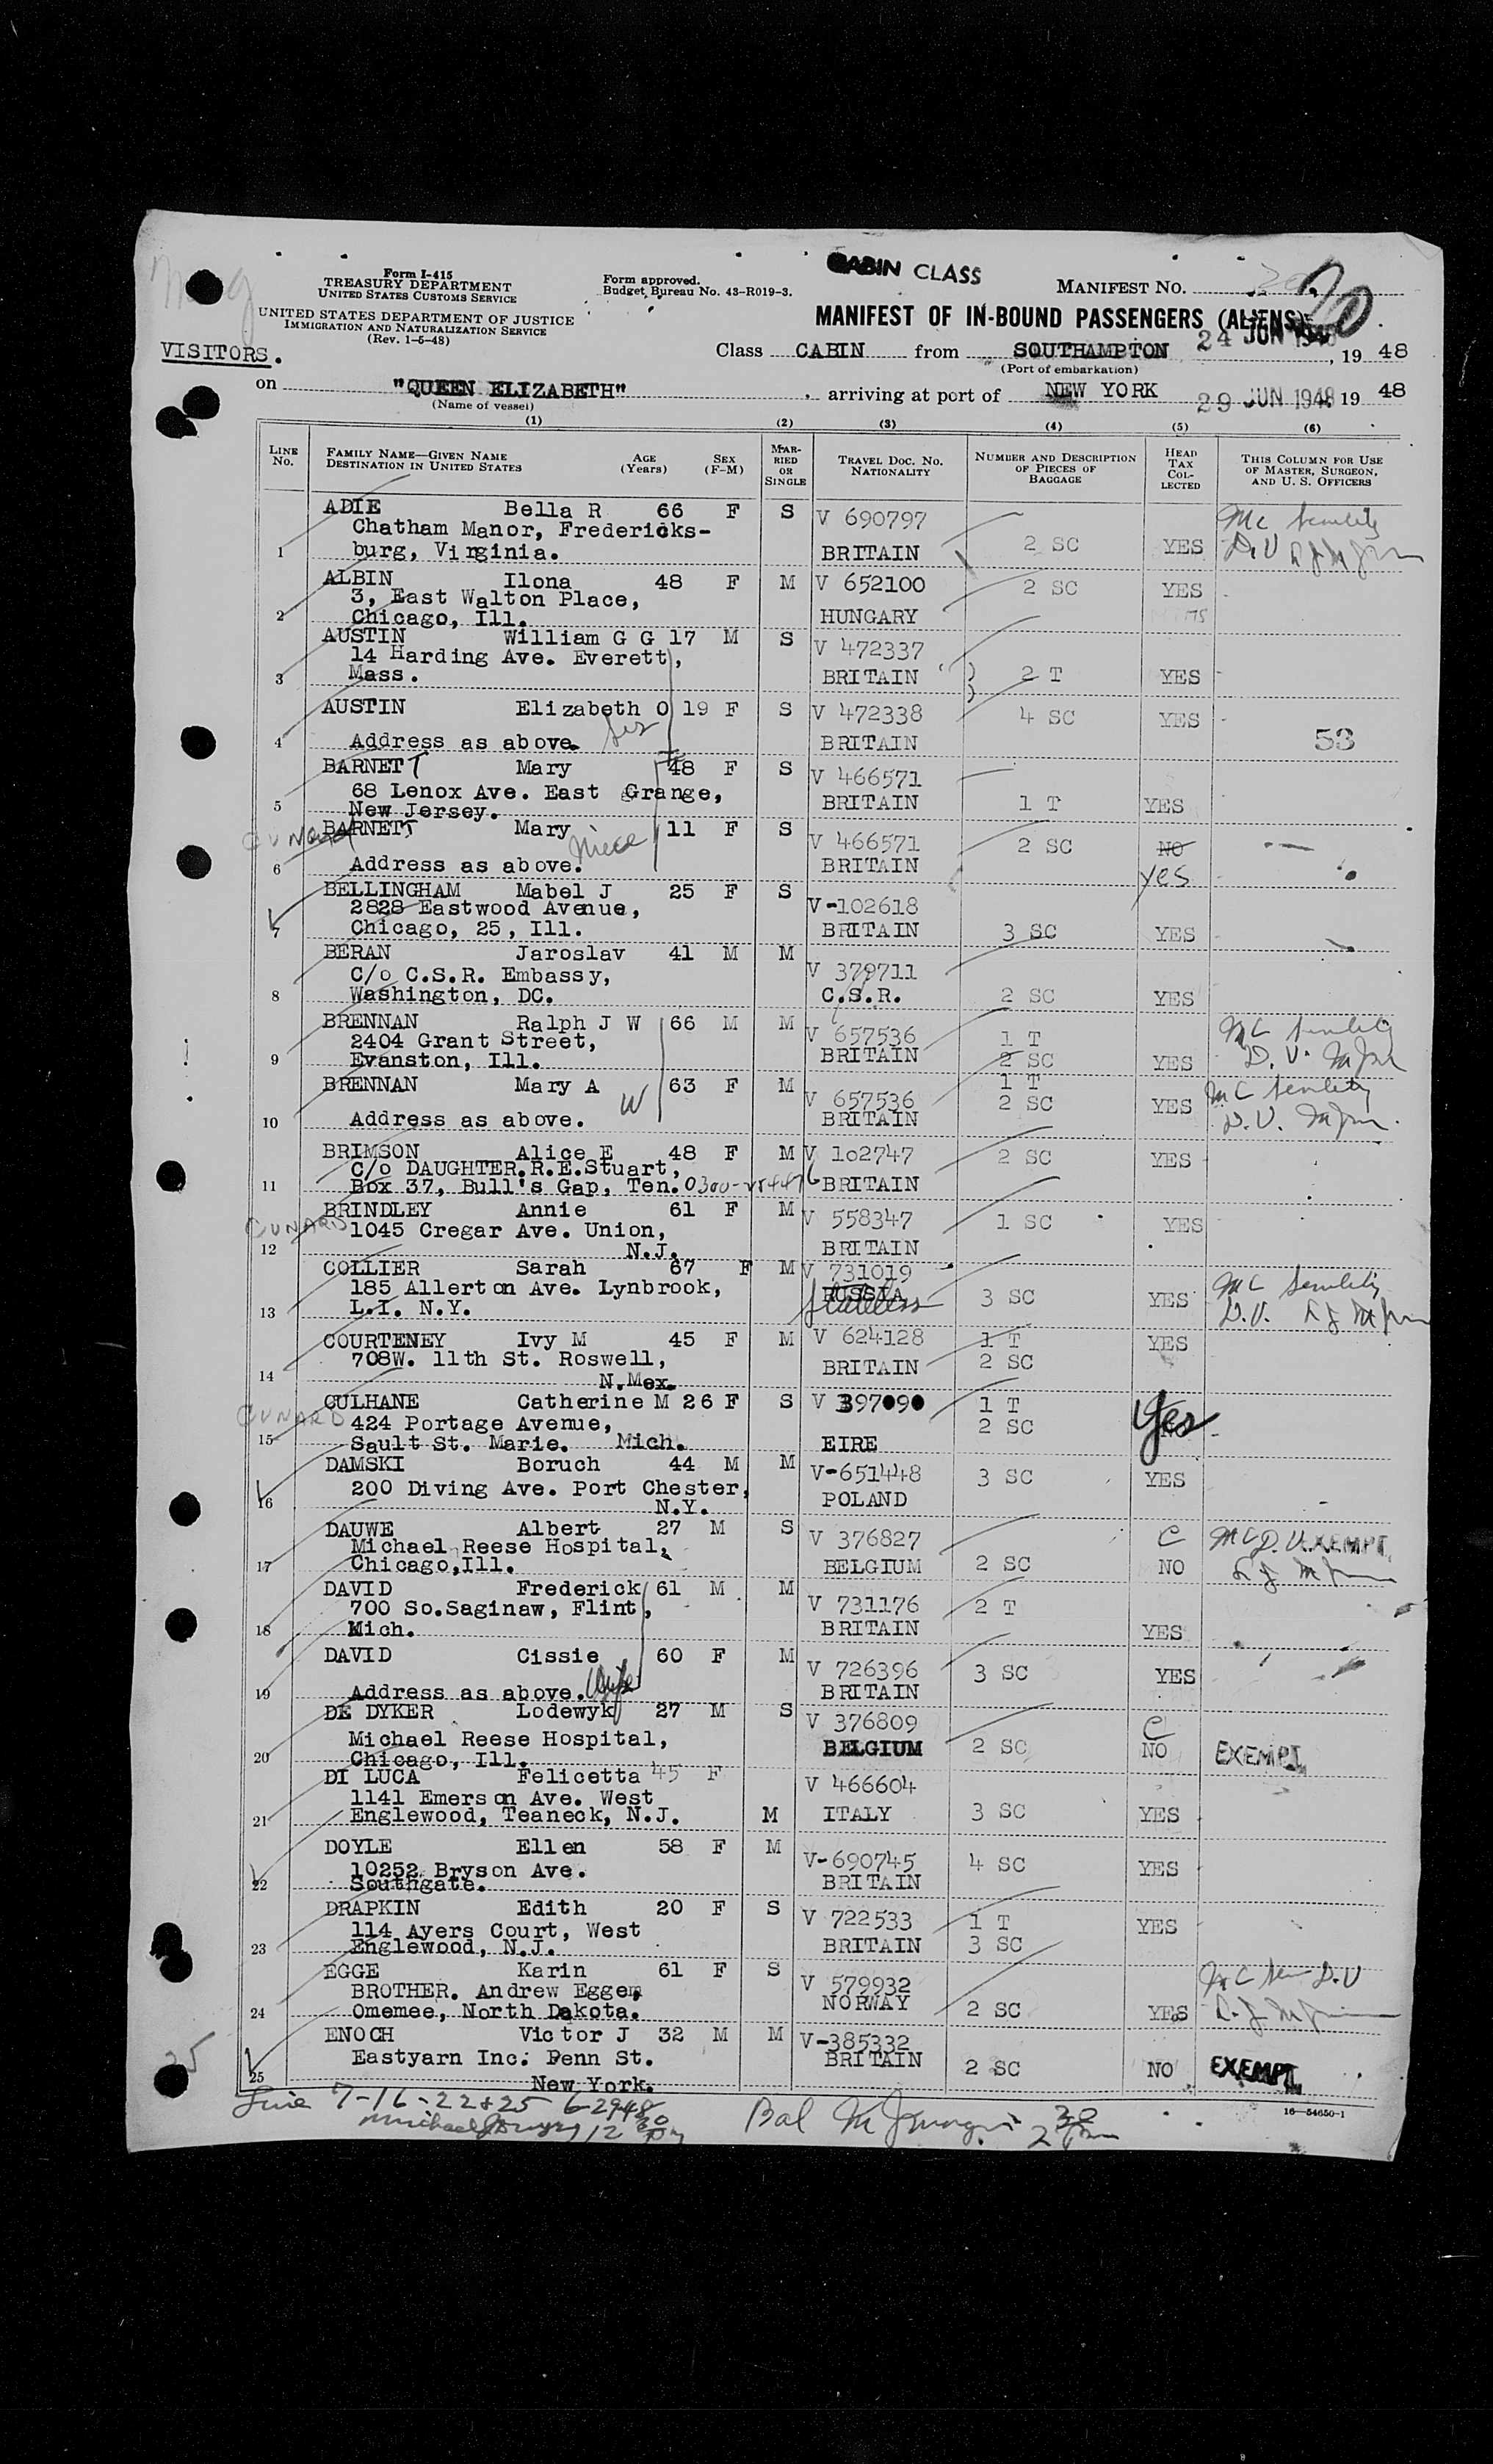 Form I-415
TREASURY DEPARTMENT
UNITED STATES CUSTOMS SERVICE
UNITED STATES DEPARTMENT OF JUSTICE
IMMIGRATION AND NATURALIZATION SERVICE
(Rev. 1-5-48)
Form approved.
Budget Bureau No. 43-R019-3.
CABIN CLASS
MANIFEST NO. 20
MANIFEST OF IN-BOUND PASSENGERS (ALIENS)
VISITORS.
Class CABIN from SOUTHAMPTON 24 JUN 1948, 19 48
(Port of embarkation)
on "QUEEN ELIZABETH" arriving at port of NEW YORK 29 JUN 1948 19 48
(Name of vessel)
(1) (2) (3) (4) (5) (6)
LINE No. FAMILY NAME—GIVEN NAME DESTINATION IN UNITED STATES AGE (Years) SEX (F-M) MARRIED OR SINGLE TRAVEL DOC. NO. NATIONALITY NUMBER AND DESCRIPTION OF PIECES OF BAGGAGE HEAD TAX COLLECTED THIS COLUMN FOR USE OF MASTER, SURGEON, AND U. S. OFFICERS
ADIE Bella R 66 F S V 690797 Mc Senility
Chatham Manor, Fredericks-
1 burg, Virginia. BRITAIN 2 SC YES D.V
ALBIN Ilona 48 F M V 652100 2 SC YES
3, East Walton Place,
2 Chicago, Ill. HUNGARY
AUSTIN William G G 17 M S V 472337
14 Harding Ave. Everett,
3 Mass. BRITAIN 2 T YES
AUSTIN Elizabeth O 19 F S V 472338 4 SC YES
4 Address as above. Sis BRITAIN 53
BARNETT Mary 48 F S V 466571
68 Lenox Ave. East Grange,
5 New Jersey. BRITAIN 1 T YES
CUNARD BARNETT Mary 11 F S V 466571 2 SC NO
6 Address as above. Niece BRITAIN yes
BELLINGHAM Mabel J 25 F S V-102618
2828 Eastwood Avenue,
7 Chicago, 25, Ill. BRITAIN 3 SC YES
BERAN Jaroslav 41 M M V 379711
C/o C.S.R. Embassy,
8 Washington, DC. C.S.R. 2 SC YES
BRENNAN Ralph J W 66 M M V 657536 1 T MC Senility
2404 Grant Street,
9 Evanston, Ill. BRITAIN 2 SC YES D.V.
BRENNAN Mary A 63 F M V 657536 1 T MC Senility
W 2 SC YES
10 Address as above. BRITAIN D.V.
BRIMSON Alice E 48 F M V 102747 2 SC YES
C/o DAUGHTER.R.E.Stuart,
11 Box 37, Bull's Gap, Ten. BRITAIN
BRINDLEY Annie 61 F M V 558347 1 SC YES
CUNARD 1045 Cregar Ave. Union,
12 N.J. BRITAIN
COLLIER Sarah 67 F M V 731019 MC Senility
185 Allerton Ave. Lynbrook, RUSSIA
13 L.I. N.Y. Stateless 3 SC YES D.V.
COURTENEY Ivy M 45 F M V 624128 1 T YES
708W. 11th St. Roswell, 2 SC
14 N.Mex. BRITAIN
CULHANE Catherine M 26 F S V 397090 1 T Yes
CUNARD 424 Portage Avenue, 2 SC
15 Sault St. Marie. Mich. EIRE
DAMSKI Boruch 44 M M V-651448 3 SC YES
200 Diving Ave. Port Chester,
16 N.Y. POLAND
DAUWE Albert 27 M S V 376827 C MC D.V. EXEMPT
Michael Reese Hospital,
17 Chicago,Ill. BELGIUM 2 SC NO
DAVID Frederick 61 M M V 731176 2 T
700 So.Saginaw, Flint,
18 Mich. BRITAIN YES
DAVID Cissie 60 F M V 726396 3 SC YES
19 Address as above. Wife BRITAIN
DE DYKER Lodewyk 27 M S V 376809 C
Michael Reese Hospital,
20 Chicago, Ill. BELGIUM 2 SC NO EXEMPT
DI LUCA Felicetta 45 F V 466604
1141 Emerson Ave. West
21 Englewood, Teaneck, N.J. M ITALY 3 SC YES
DOYLE Ellen 58 F M V-690745 4 SC YES
10252 Bryson Ave.
22 Southgate. BRITAIN
DRAPKIN Edith 20 F S V 722533 1 T YES
114 Ayers Court, West
23 Englewood, N.J. BRITAIN 3 SC
EGGE Karin 61 F S V 579932 MC Sen D.V
BROTHER. Andrew Eggem, NORWAY
24 Omemee, North Dakota. 2 SC YES
ENOCH Victor J 32 M M V-385332
Eastyarn Inc: Penn St. BRITAIN
25 New York. 2 SC NO EXEMPT
Line 7-16-22&25 6-29-48
Bal
16—54650-1